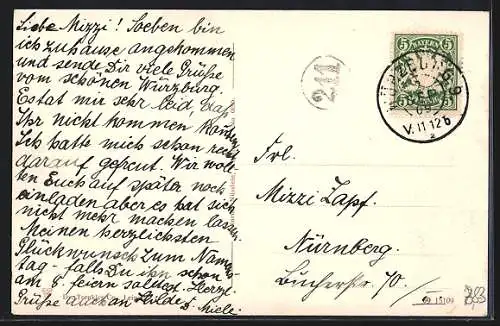 Liebe Mizzi! Soeben bin
ich zuhause angekommen
und sende Dir viele Grüße
vom schönen Würzburg.
Es tat mir sehr leid, daß
Ihr nicht kommen konntet.
Ich hatte mich schon recht
darauf gefreut. Wir woll-
ten Euch auf später noch
einladen aber es hat sich
nicht mehr machen lassen.
Meinen herzlichsten
Glückwunsch zum Namens-
tag - falls Du ihn schon
am 8. feiern solltest. Herzl.
Grüße auch an Hilde
5 BAYERN 5
211
V. 11-12
Frl.
Mizzi Zapf.
Nürnberg.
Bucherstr. 70/I
15109